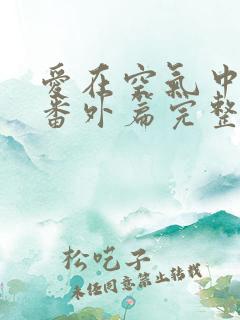 愛在空氣中
番外篇完整
松吃子
未经同意禁止转载